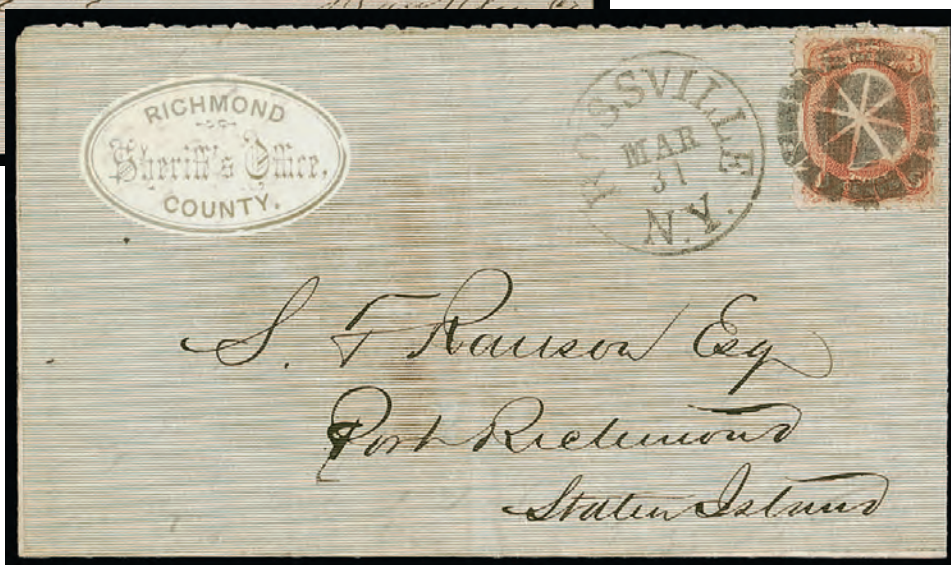 RICHMOND
Sheriff's Office,
COUNTY.
ROSSVILLE
MAR
31
N.Y.
S. F Ranson Esq
Port Richmond
Staten Island